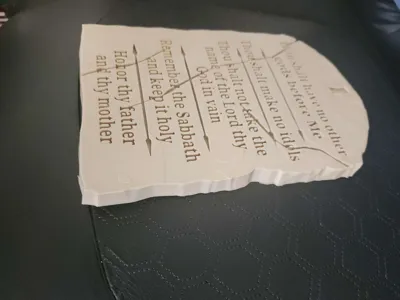 I
shalt have no other
gods before Me
Thou shall make no idols
Thou shalt not take the
name of the Lord thy
God in vain
Remember the Sabbath
and keep it holy
Honor thy father
and thy mother